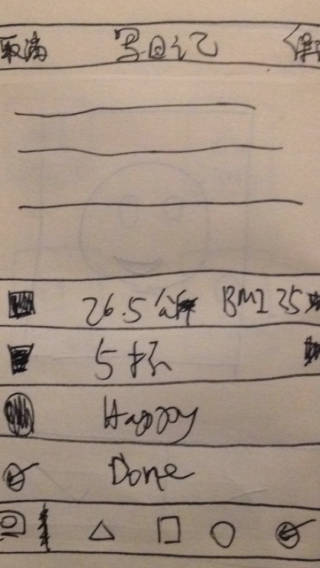 取消 写日记 保
26.5公斤 BMI 25
5杯
Happy
Done